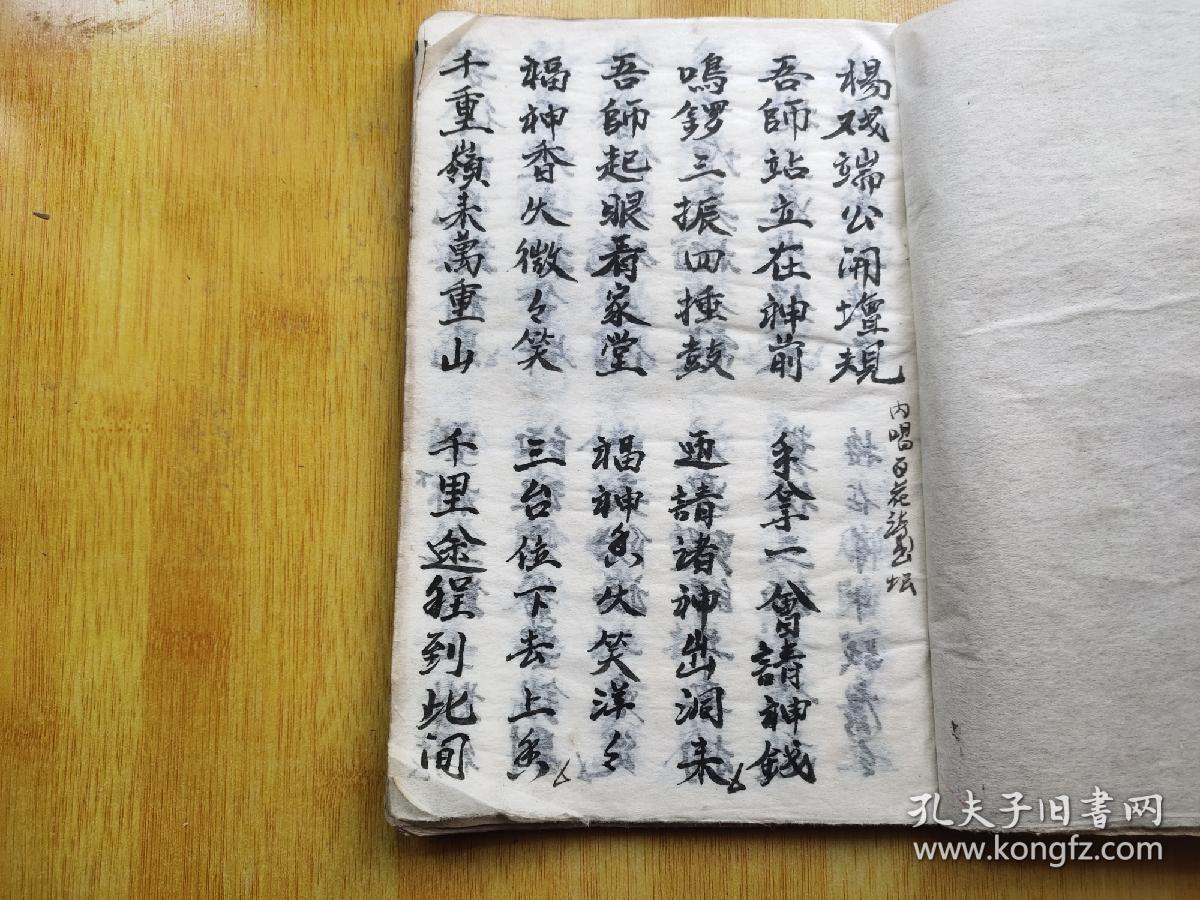 楊戏端公開壇規
内唱百花诗出坛
吾師站立在神前 手拿一會請神錢
鳴鑼三振四捶鼓 迎請诸神出洞来
吾師起眼看家堂 福神香火笑洋々
福神香火微々笑 三台位下去上香
千重嶺来萬重山 千里途程到此间
孔夫子旧书网
www.kongfz.com